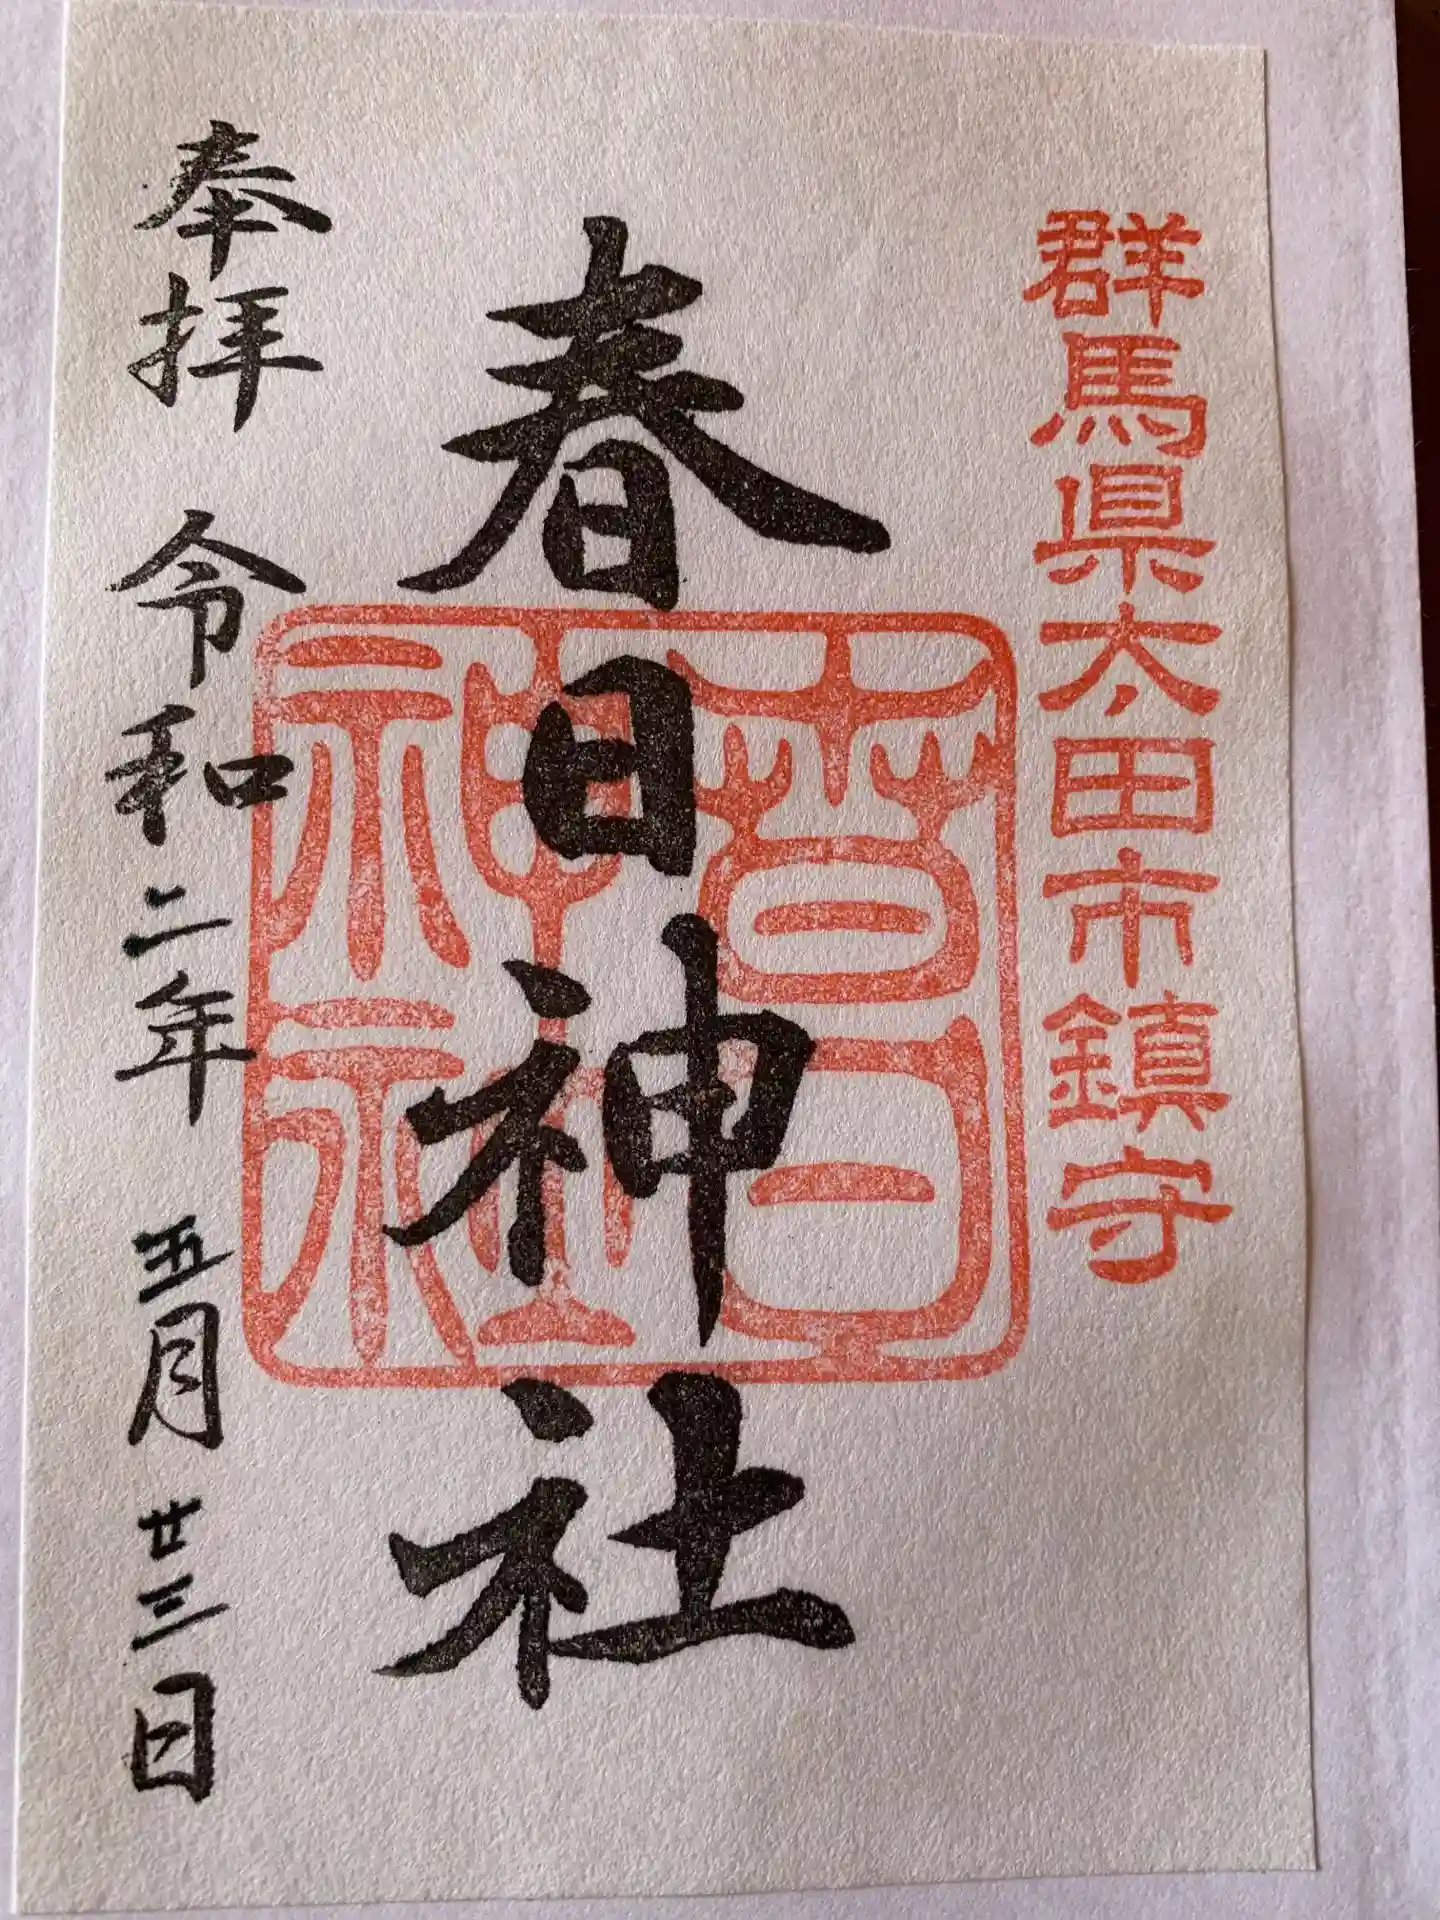 群馬県太田市鎮守
春日神社
春日神社
奉拝 令和二年 五月 廿三日